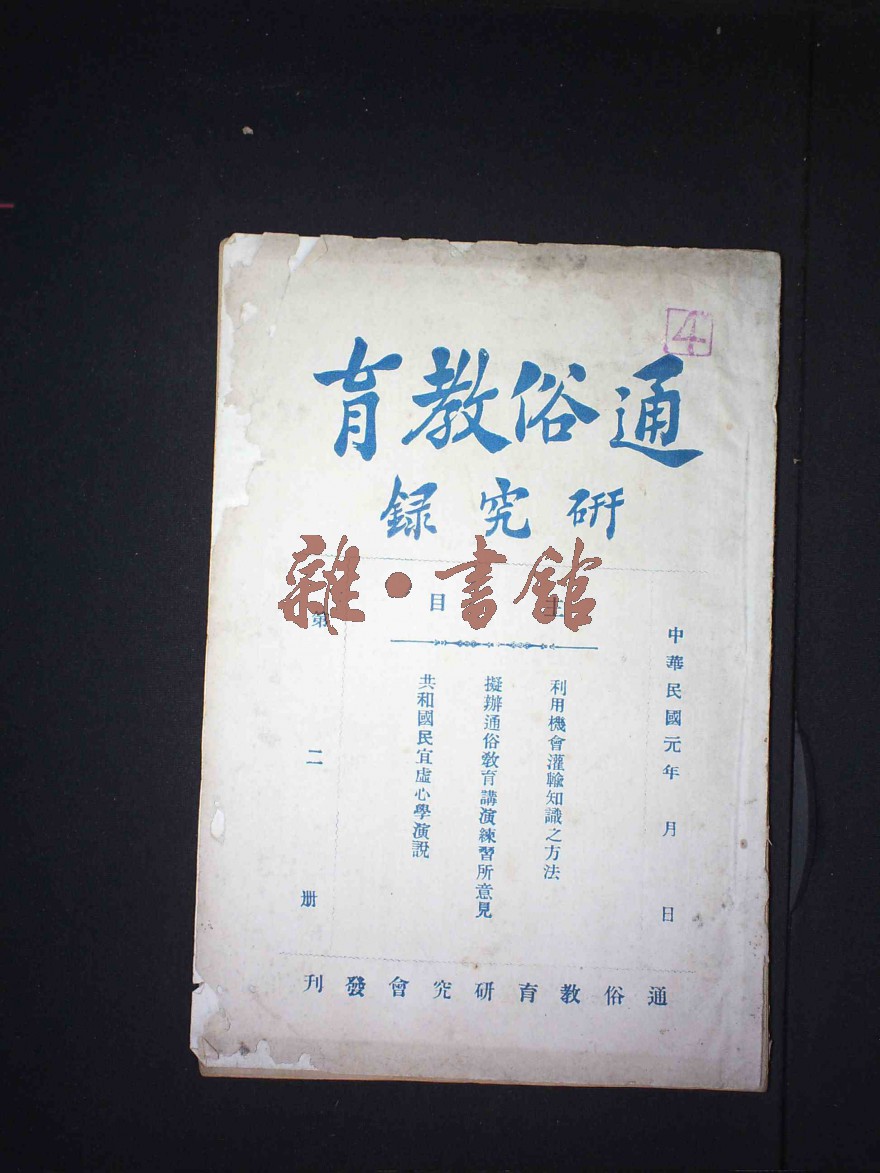 4
通俗教育
研究録
雜·書館
中華民國元年 月 日
主目
利用機會灌輸知識之方法
擬辦通俗教育講演練習所意見
共和國民宜虛心學演說
第二册
通俗教育研究會發刊